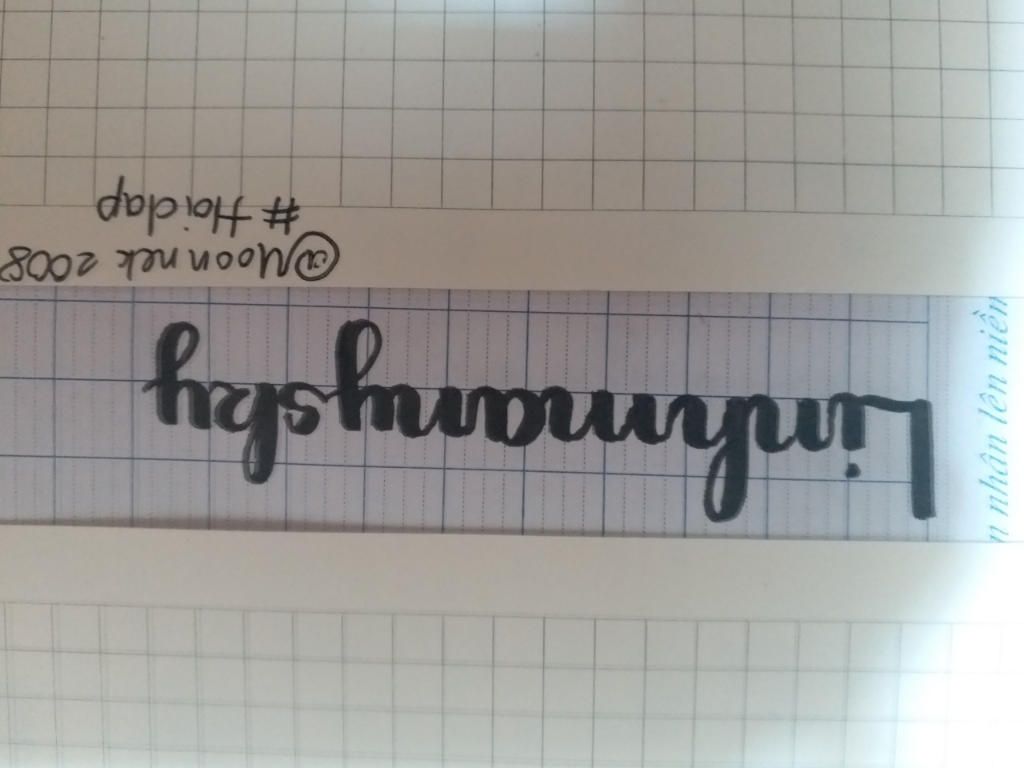 Linhmanysky
@Moon nek 2008
# Hoidap
nhân lên niềm